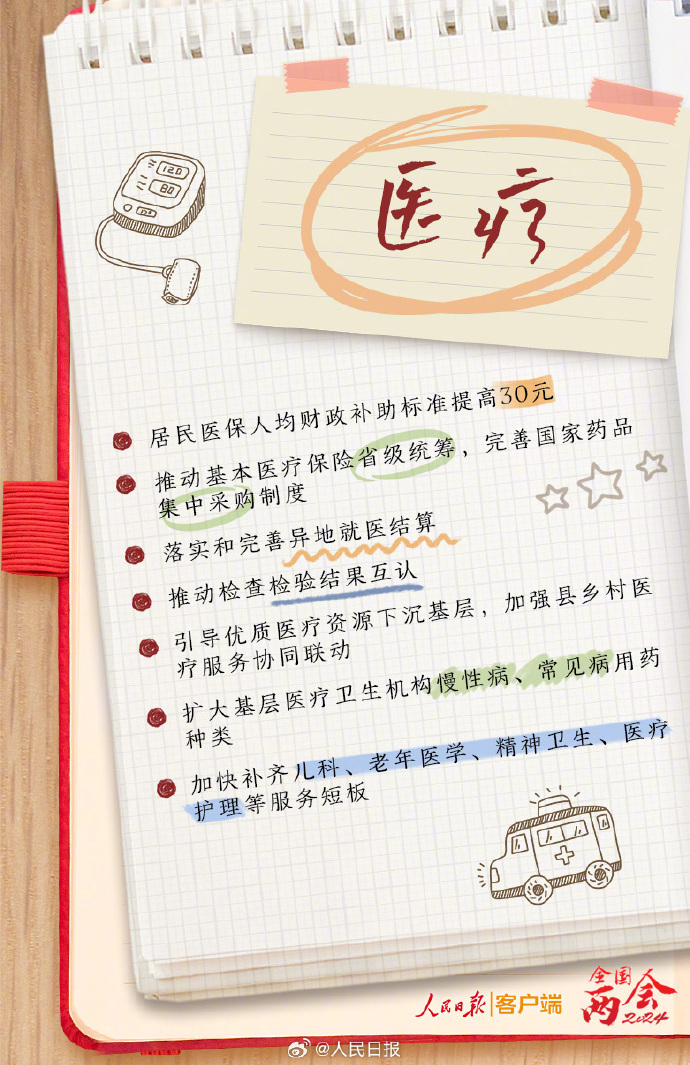 120
80
医疗
居民医保人均财政补助标准提高30元
推动基本医疗保险省级统筹，完善国家药品
集中采购制度
落实和完善异地就医结算
推动检查检验结果互认
引导优质医疗资源下沉基层，加强县乡村医
疗服务协同联动
扩大基层医疗卫生机构慢性病、常见病用药
种类
加快补齐儿科、老年医学、精神卫生、医疗
护理等服务短板
人民日报|客户端
全国
两会
2024
@人民日报